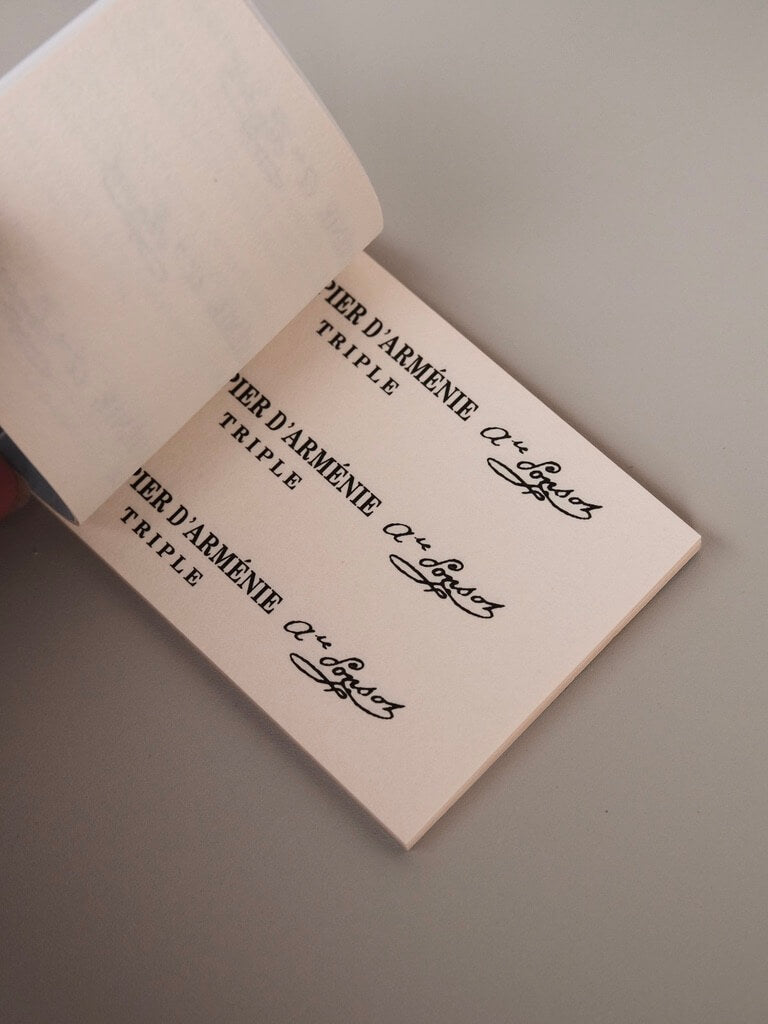 PIER D'ARMÉNIE
TRIPLE
Aᵗᵉ Ponsot
PIER D'ARMÉNIE
TRIPLE
Aᵗᵉ Ponsot
PIER D'ARMÉNIE
TRIPLE
Aᵗᵉ Ponsot